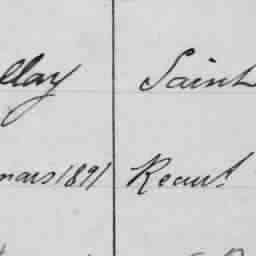 llay Saint
mars 1891 Recrut